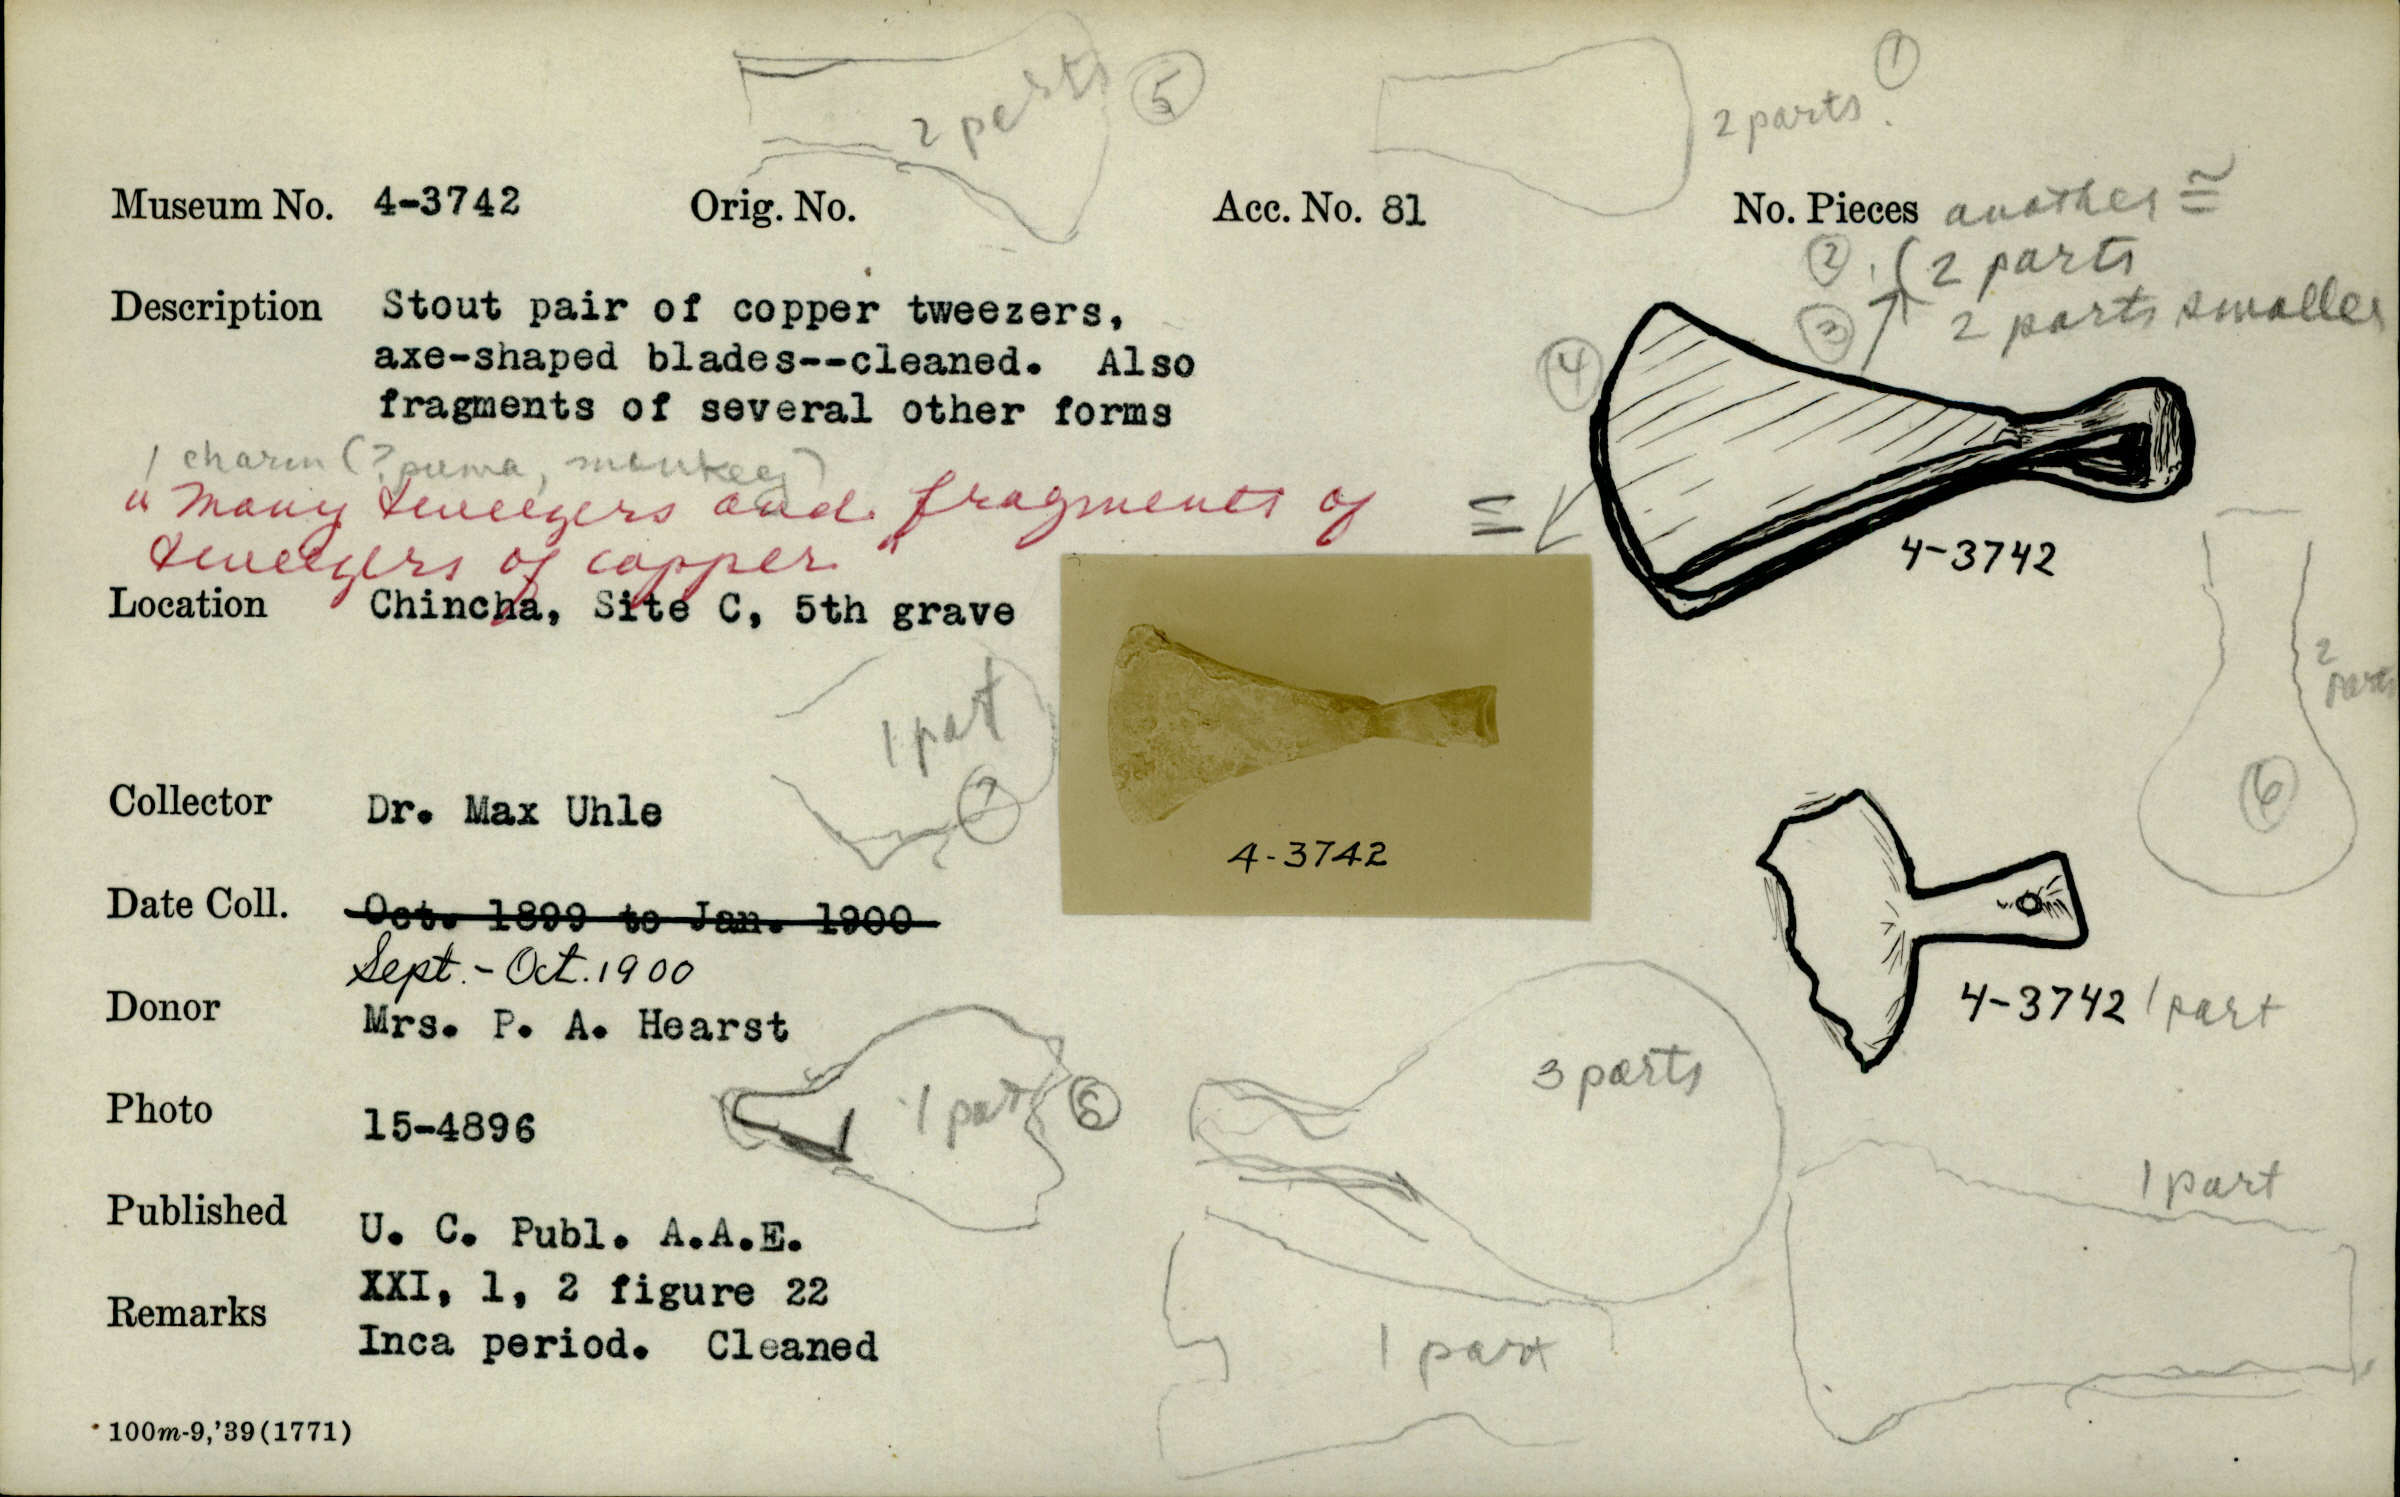 2 parts ⑤
2 parts. ①
Museum No. 4-3742 Orig. No. Acc. No. 81 No. Pieces another ≅
② (2 parts
③ 2 parts smaller
④
Description Stout pair of copper tweezers,
axe-shaped blades--cleaned. Also
fragments of several other forms
1 charm (? puma, monkey)
"Many tweezers and fragments of
tweezers of copper"
4-3742
Location Chincha, Site C, 5th grave
2 parts
⑥
1 part
⑦
4-3742
Collector Dr. Max Uhle
Date Coll. Oct. 1899 to Jan. 1900
Sept. - Oct. 1900
4-3742 1 part
Donor Mrs. P. A. Hearst
Photo 15-4896
1 part ⑧
3 parts
1 part
Published U. C. Publ. A.A.E.
XXI, 1, 2 figure 22
Remarks Inca period. Cleaned
1 part
100m-9,'39(1771)